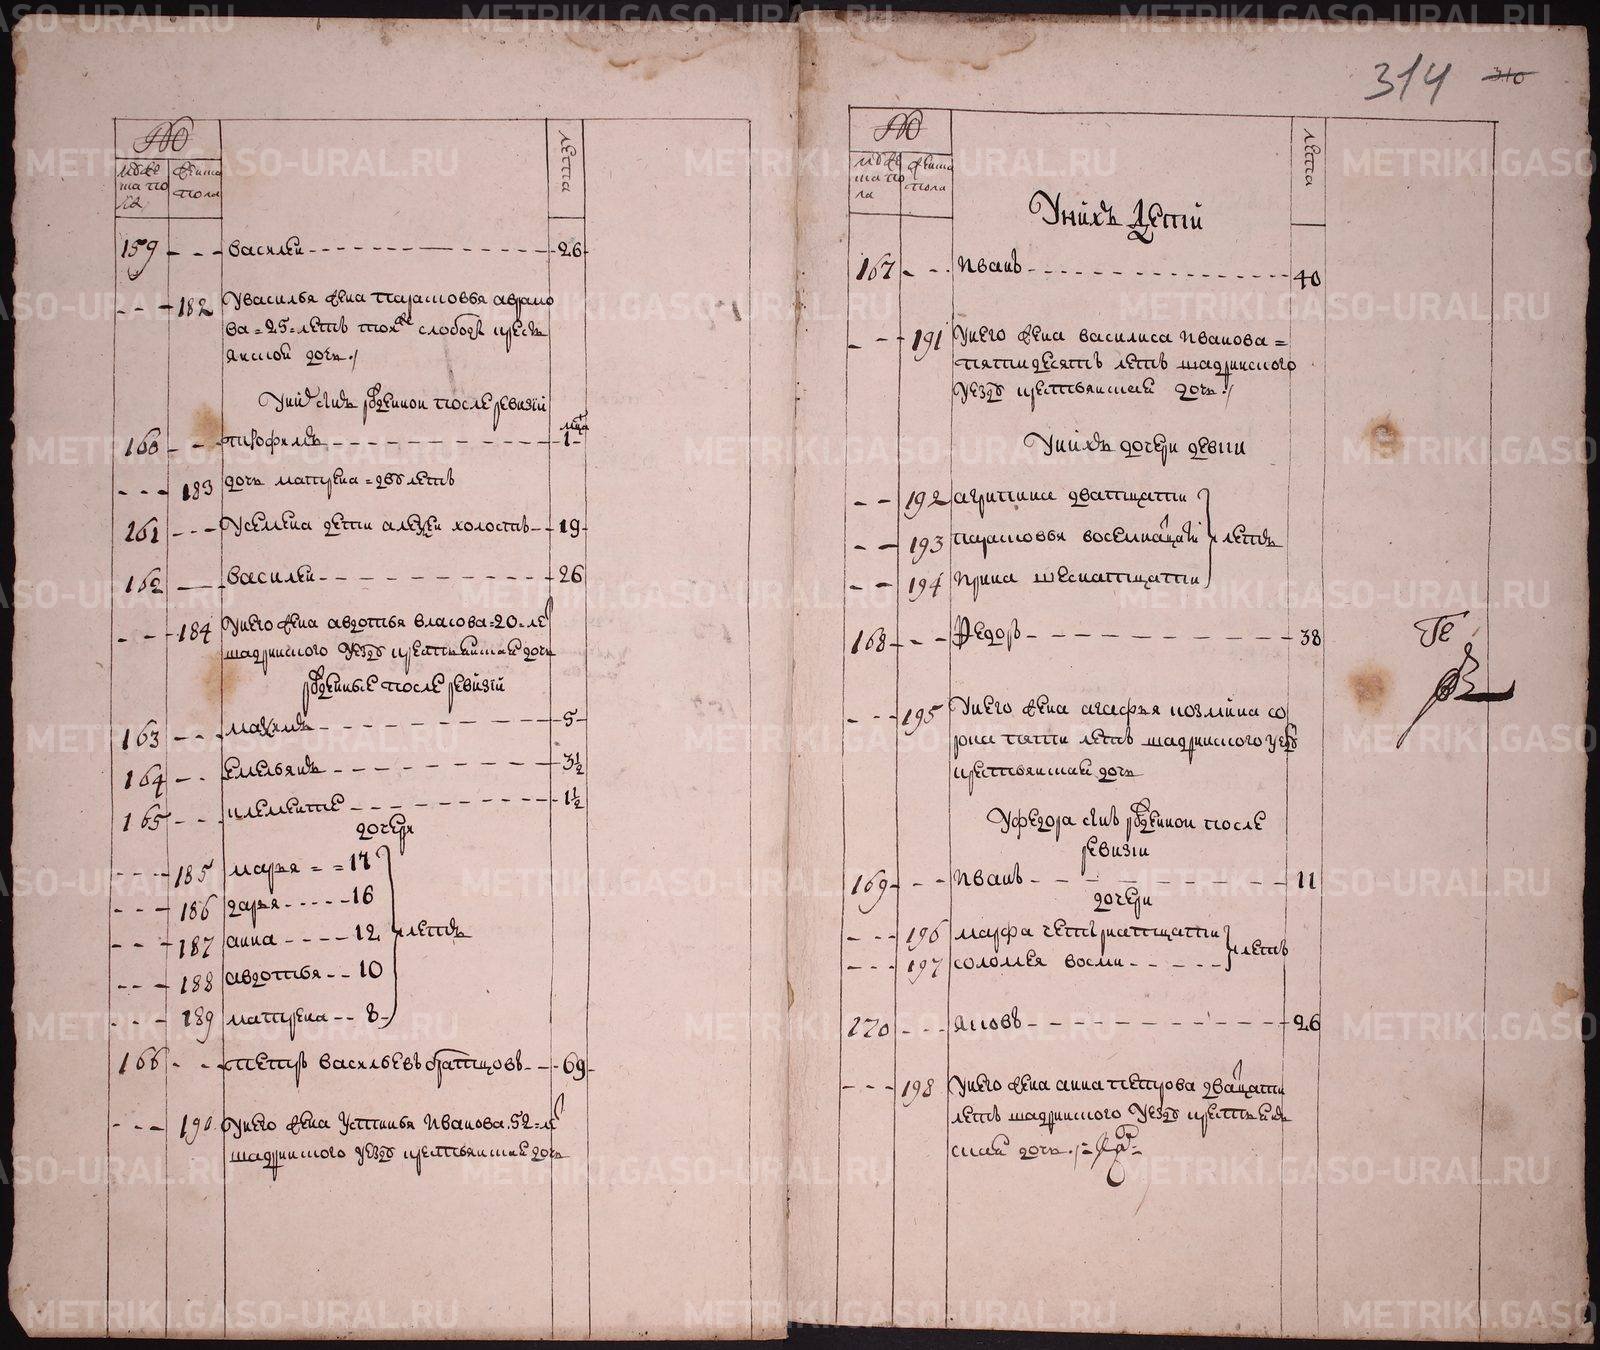 №
мужеска пола
женска пола
лета
159 василеи 26
182 У василья жена парасковья аврамо
ва = 25 = летъ тоя же слободы кресть
янской дочь
У них сынъ рожденнои после ревизiи
160 трофимъ мца 1
183 дочь матрена = двб летъ
161 У семена дети алексеи холостъ 19
162 василеи 26
184 У него жена авдотья власова = 20 = ле
шадринского уезду крестьянская дочь
рожденные после ревизiи
163 максимъ 5
164 емельянъ 3½
165 клементеи 1½
дочери
185 марья = = 17
186 дарья 16
187 анна 12 летъ
188 авдотья 10
189 матрена 8
166 петръ васильевъ братцовъ 69
190 У него жена устинья иванова 52 = ле
шадринского уезду крестьянская дочь
314 310
№
мужеска пола
женска пола
лета
У нихъ детей
167 иванъ 40
191 У него жена василиса иванова =
пятидесятъ летъ шадринского
уезду крестьянская дочь
У нихъ дочери девки
192 агрипина дватцати
193 парасковья восемнатцати летъ
194 ирина шеснатцати
168 Федоръ 38
195 У него жена агафья козмина со
рока пяти летъ шадринского уезду
крестьянская дочь
У федора сынъ рожденнои после
ревизiи
169 иванъ 11
дочери
196 марфа четырнатцати
197 соломея восми летъ
170 яковъ 26
198 У него жена анна петрова дватцати
летъ шадринского уезду крестьян
ская дочь